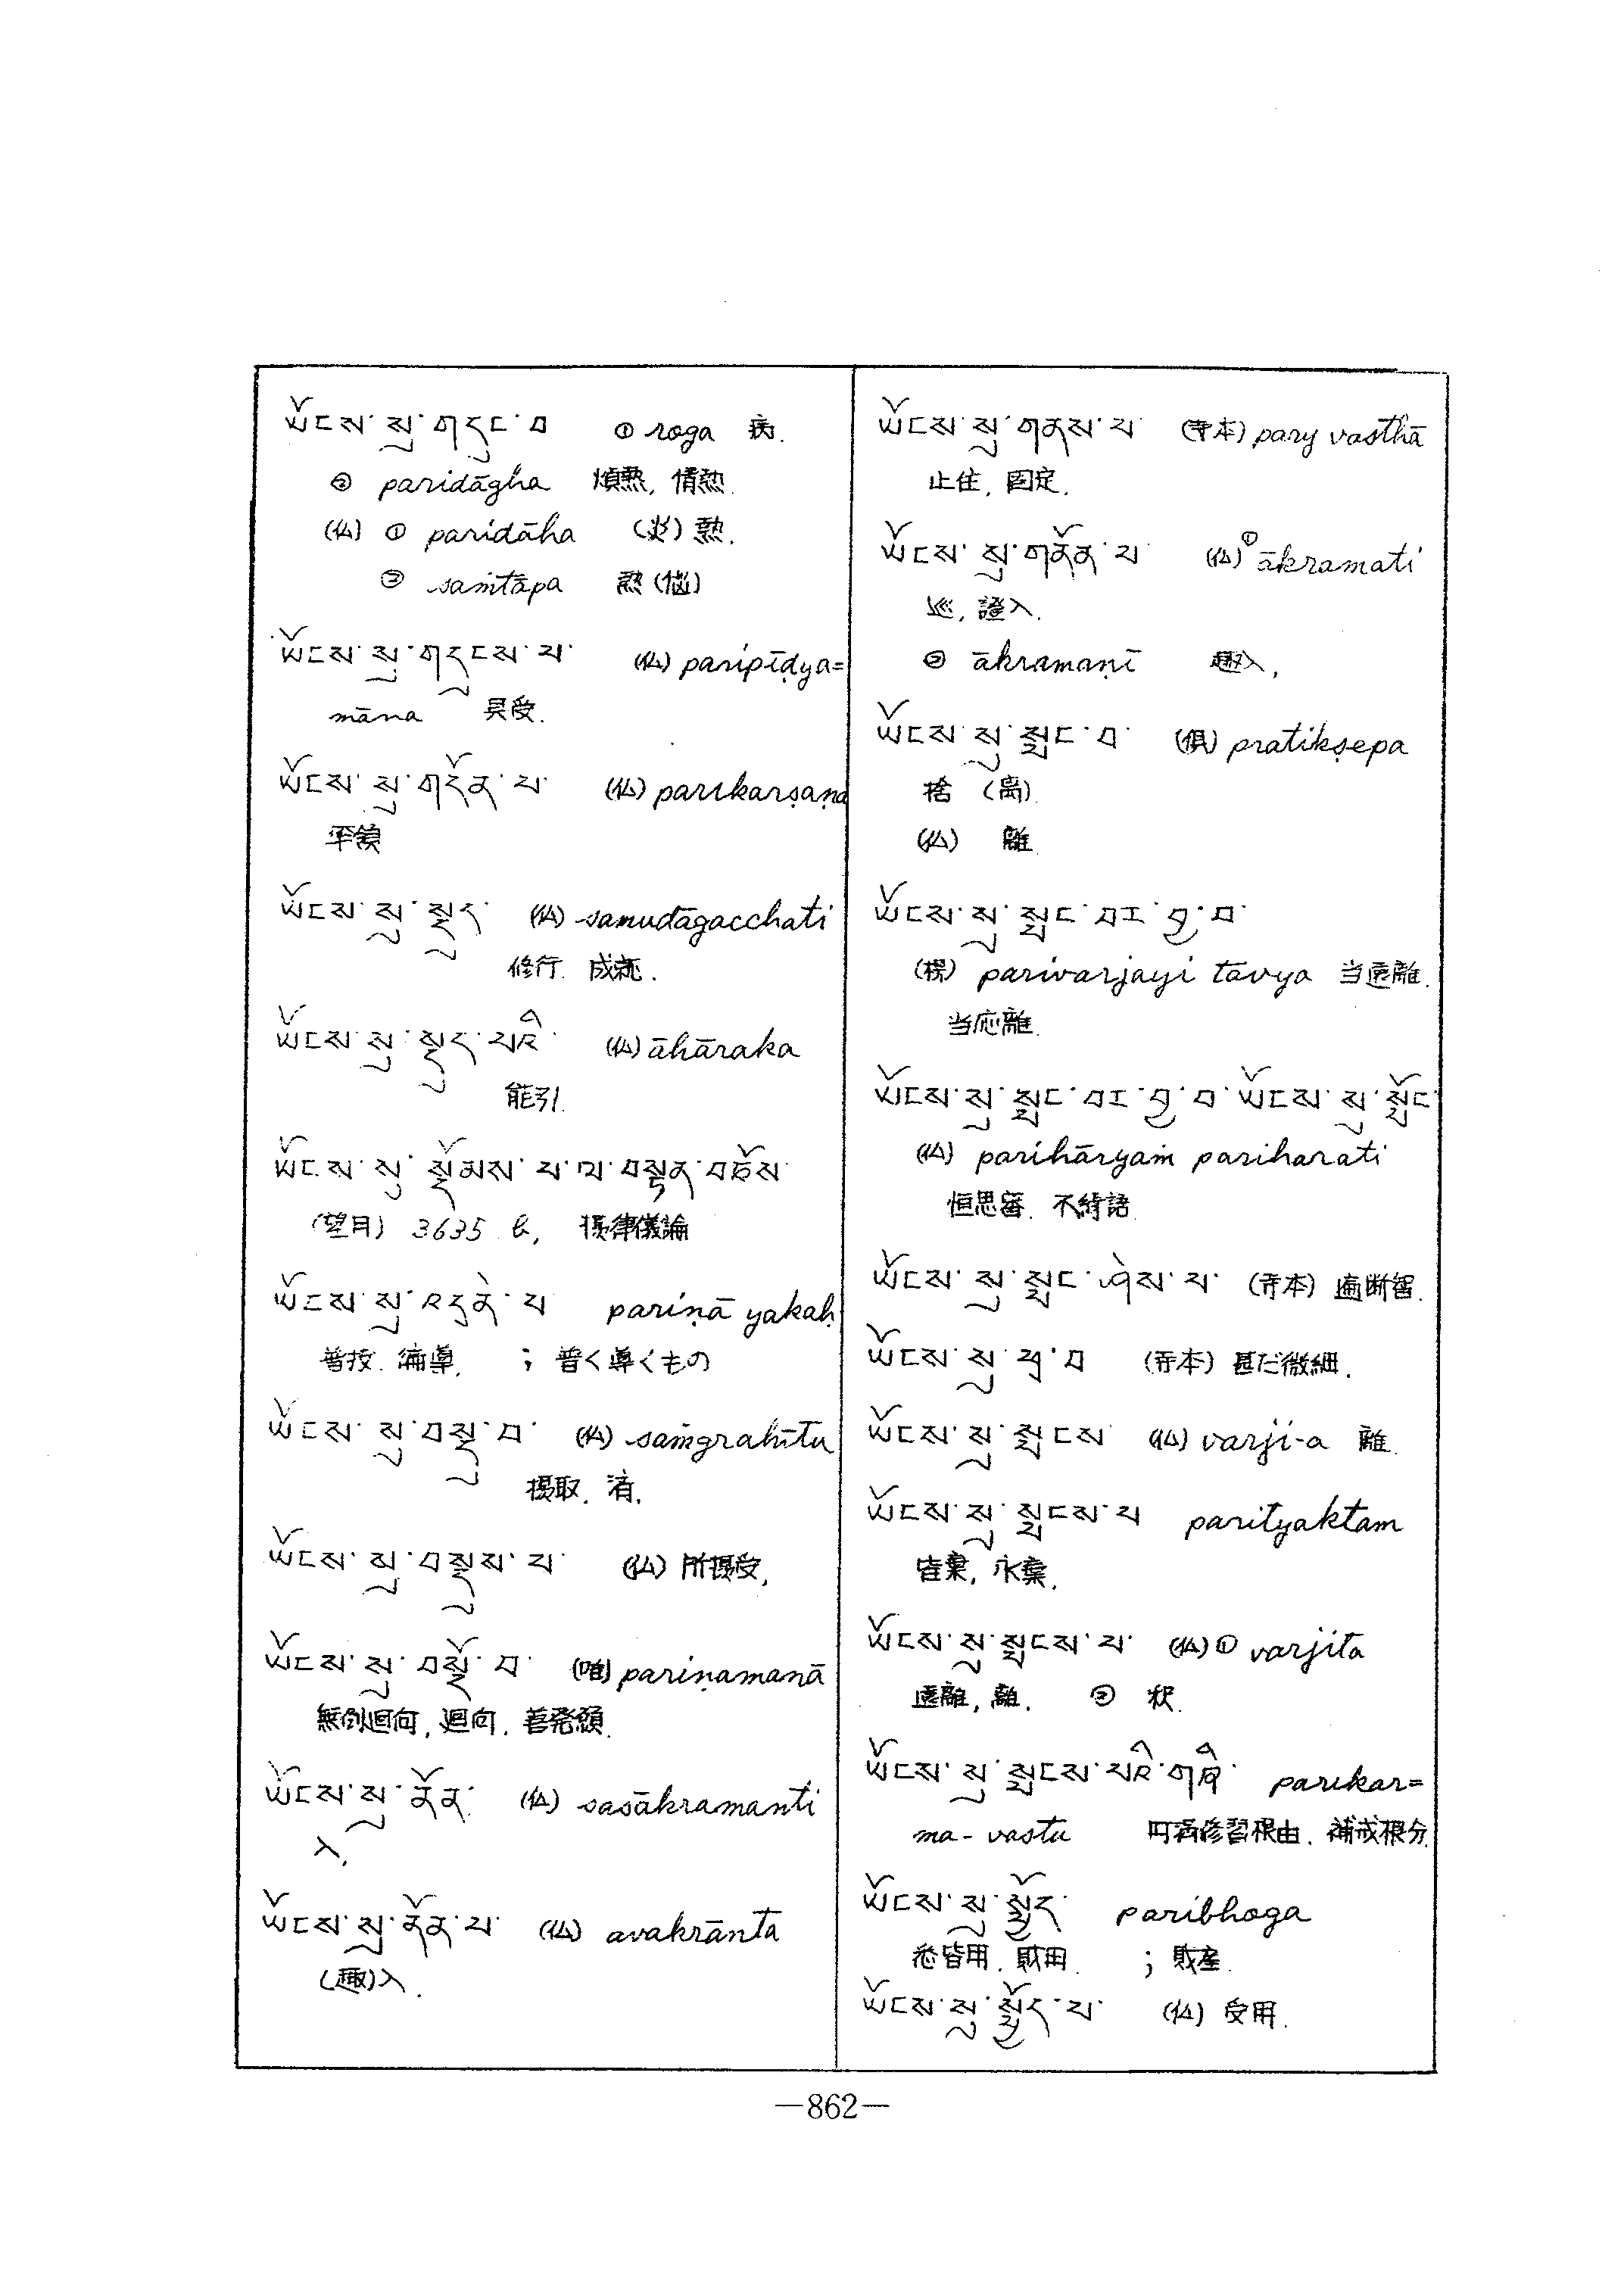 ཡོངས་སུ་གདུང་བ ① roga 病.
② paridāgha 煩熱, 情熱.
(仏) ① paridāha (炎) 熱.
② saṁtāpa 熱(悩)
ཡོངས་སུ་གདུངས་པ་ (仏) paripīḍya=
māna 具受.
ཡོངས་སུ་གདོན་པ་ (仏) parikarṣaṇa
ཡོངས་སུ་སྡུད་ (仏) samudāgacchati
修行. 成就.
ཡོངས་སུ་སྡུད་པའི་ (仏) āhāraka
能引.
ཡོངས་སུ་སྡོམས་པ་ལ་བསྟན་བཅོས་
(望月) 3635 b, 摂律儀論
ཡོངས་སུ་འདྲེན་པ pariṇā yakaḥ
; 普く導くもの
ཡོངས་སུ་བསྡུ་བ་ (仏) saṁgrahītu
摂取. 済.
ཡོངས་སུ་བསྡུས་པ་ (仏) 所摂受,
ཡོངས་སུ་བསྔོ་བ་ pariṇamanā
無倒迴向, 迴向. 善発願.
ཡོངས་སུ་ནོན་ (仏) sasākramanti
入.
ཡོངས་སུ་ནོན་པ་ (仏) avakrānta
(趣)入.
ཡོངས་སུ་གནས་པ་ (寺本) pary vasthā
止住, 固定.
ཡོངས་སུ་གནོན་པ་ (仏) ① ākramati
証入.
② ākramaṇī 趣入,
ཡོངས་སུ་སྤང་བ་ (倶) pratikṣepa
捨 (離).
(仏) 離.
ཡོངས་སུ་སྤང་བར་བྱ་བ་
(楞) parivarjayi tavya 当遠離.
当応離.
ཡོངས་སུ་སྤང་བར་བྱ་བ་ཡོངས་སུ་སྤོང་
(仏) parihāryaṁ pariharati
恒思審. 不綺語.
ཡོངས་སུ་སྤང་ཤེས་པ་ (寺本) 遍断智.
ཡོངས་སུ་ཕྲ་བ (寺本) 甚だ微細.
ཡོངས་སུ་སྤངས (仏) varji-a 離.
ཡོངས་སུ་སྤངས་པ parityaktam
皆棄, 永棄.
ཡོངས་སུ་སྤངས་པ་ (仏) ① varjita
遠離, 離. ② 釈.
ཡོངས་སུ་སྤྱངས་པའི་གཞི་ parikar=
ma-vastu
ཡོངས་སུ་སྤྱོད་ paribhoga
悉皆用. 財用. ; 財産.
ཡོངས་སུ་སྤྱོད་པ་ (仏) 受用.
—862—